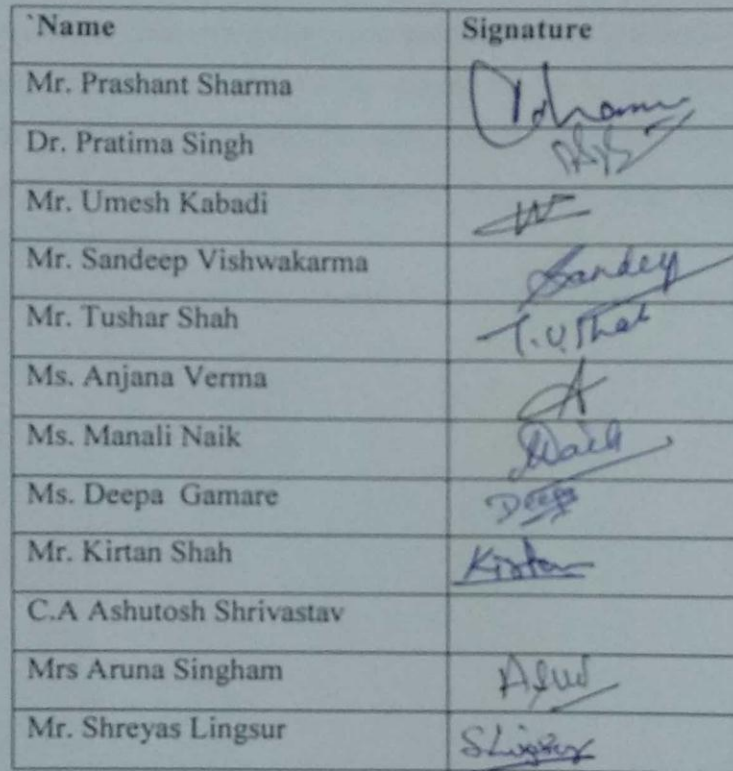 `Name Signature
Mr. Prashant Sharma
Dr. Pratima Singh
Mr. Umesh Kabadi
Mr. Sandeep Vishwakarma Sandeep
Mr. Tushar Shah T.U.Shah
Ms. Anjana Verma A
Ms. Manali Naik Naik
Ms. Deepa Gamare Deepa
Mr. Kirtan Shah Kirtan
C.A Ashutosh Shrivastav
Mrs Aruna Singham
Mr. Shreyas Lingsur SLingsur